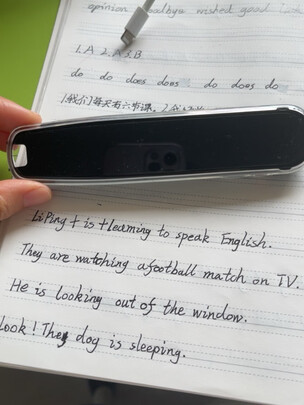 opinion goodbye wished good
1.A 2.A 3.B
do do does does do does do
1.我们每天有六节课。
LiPing + is + learning to speak English.
They are watching a football match on TV.
He is looking out of the window.
Look! The dog is sleeping.